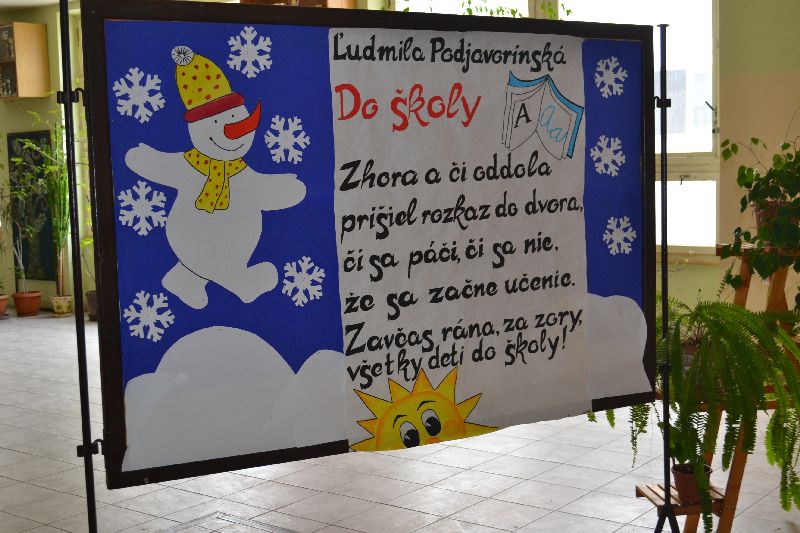 Ľudmila Podjavorinská
Do školy
A a a
Zhora a či oddola
prišiel rozkaz do dvora,
či sa páči, či sa nie,
že sa začne učenie.
Zavčas rána, za zory,
všetky deti do školy!